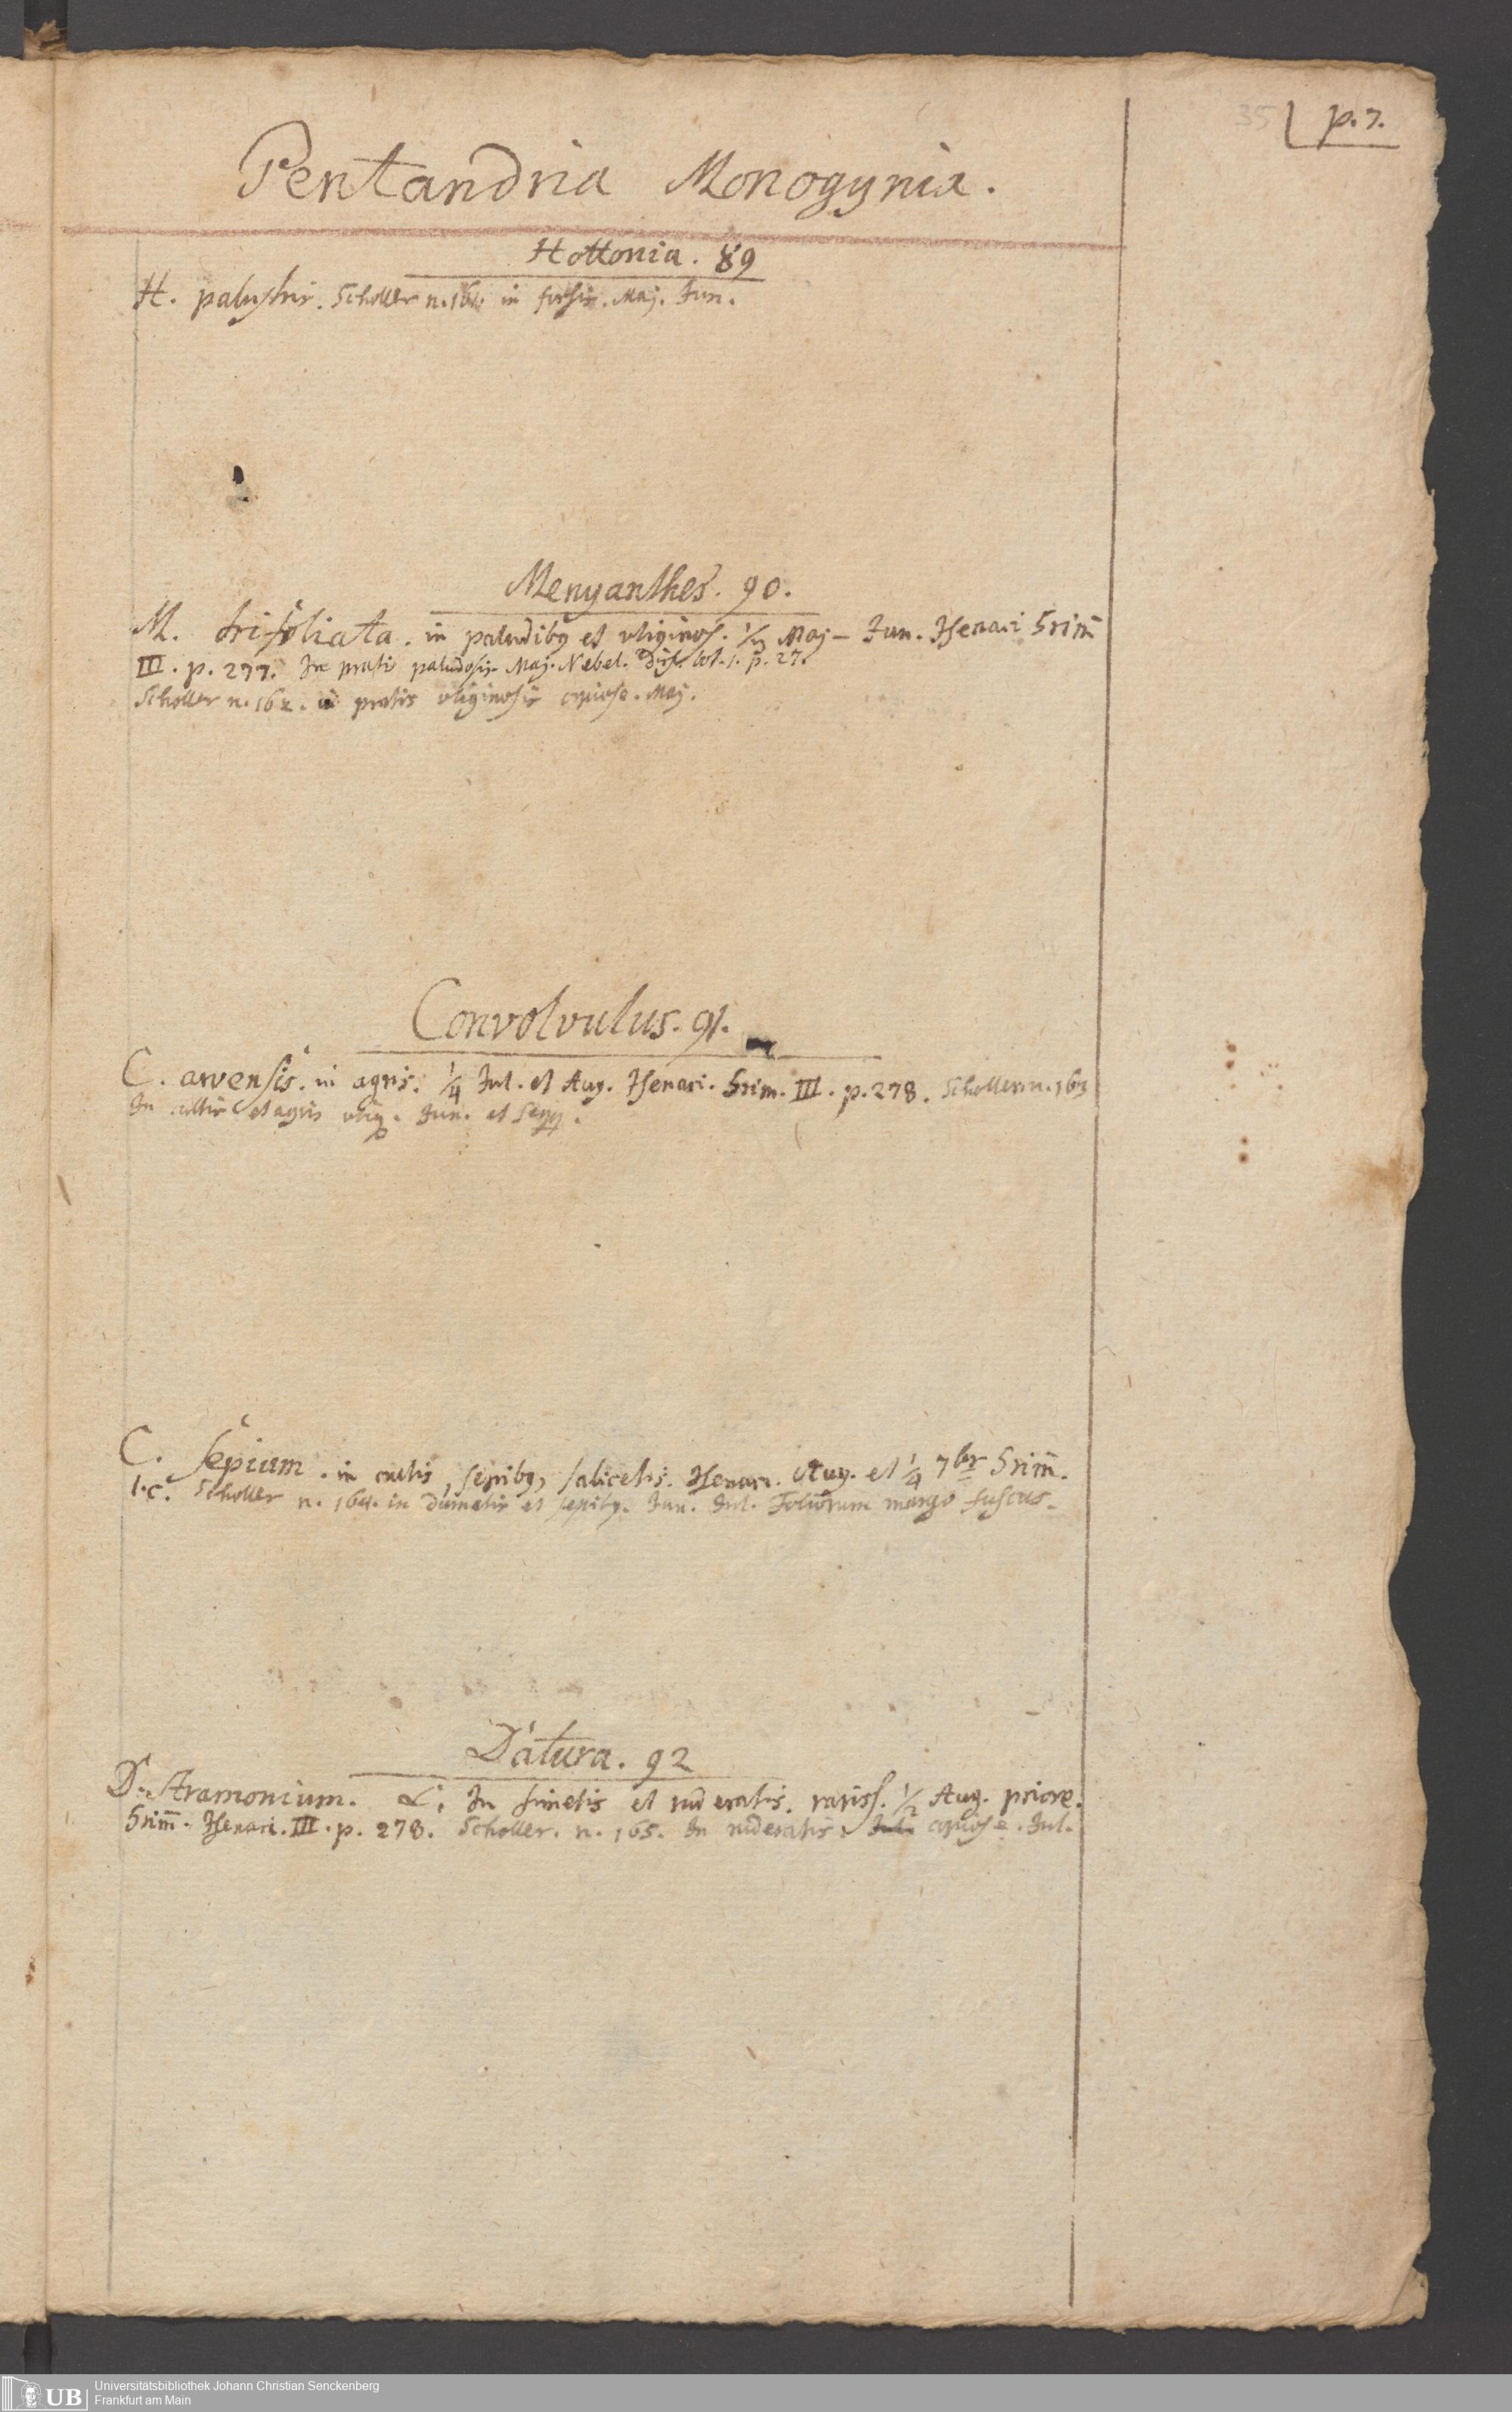 35 p. 7.
Pentandria Monogynia.
Hottonia. 89
H. palustris. Scholler n. 161. in fossis. Maj. Jun.
Menyanthes. 90.
M. trifoliata. in paludibq et uliginos. 1/2 Maj – Jun. Isenaci Grim̄
III. p. 277. In pratis paludosis. Maj. Nebel. Diss. bot. 1. p. 27.
Scholler n. 162. in pratis uliginosis copiose. Maj.
Convolvulus. 91.
C. arvensis. in agris. 1/4 Jul. et Aug. Isenaci. Grim. III. p. 278. Scholler n. 163
In cultis et agris ubiq. Jun. et seqq.
C. sepium. in cultis, sepibq, salicetis. Isenaci. Aug. et 1/4 7br Grim̄.
l. c. Scholler n. 164. in dumetis et sepibq. Jun. Jul. Foliorum margo fuscus.
Datura. 92
D. Stramonium. L. In fimetis et ruderatis. rariss. 1/2 Aug. priore.
Grim̄. Isenaci. III. p. 278. Scholler. n. 165. In ruderatis. Jul. copiose. Jul.
UB Universitätsbibliothek Johann Christian Senckenberg
Frankfurt am Main